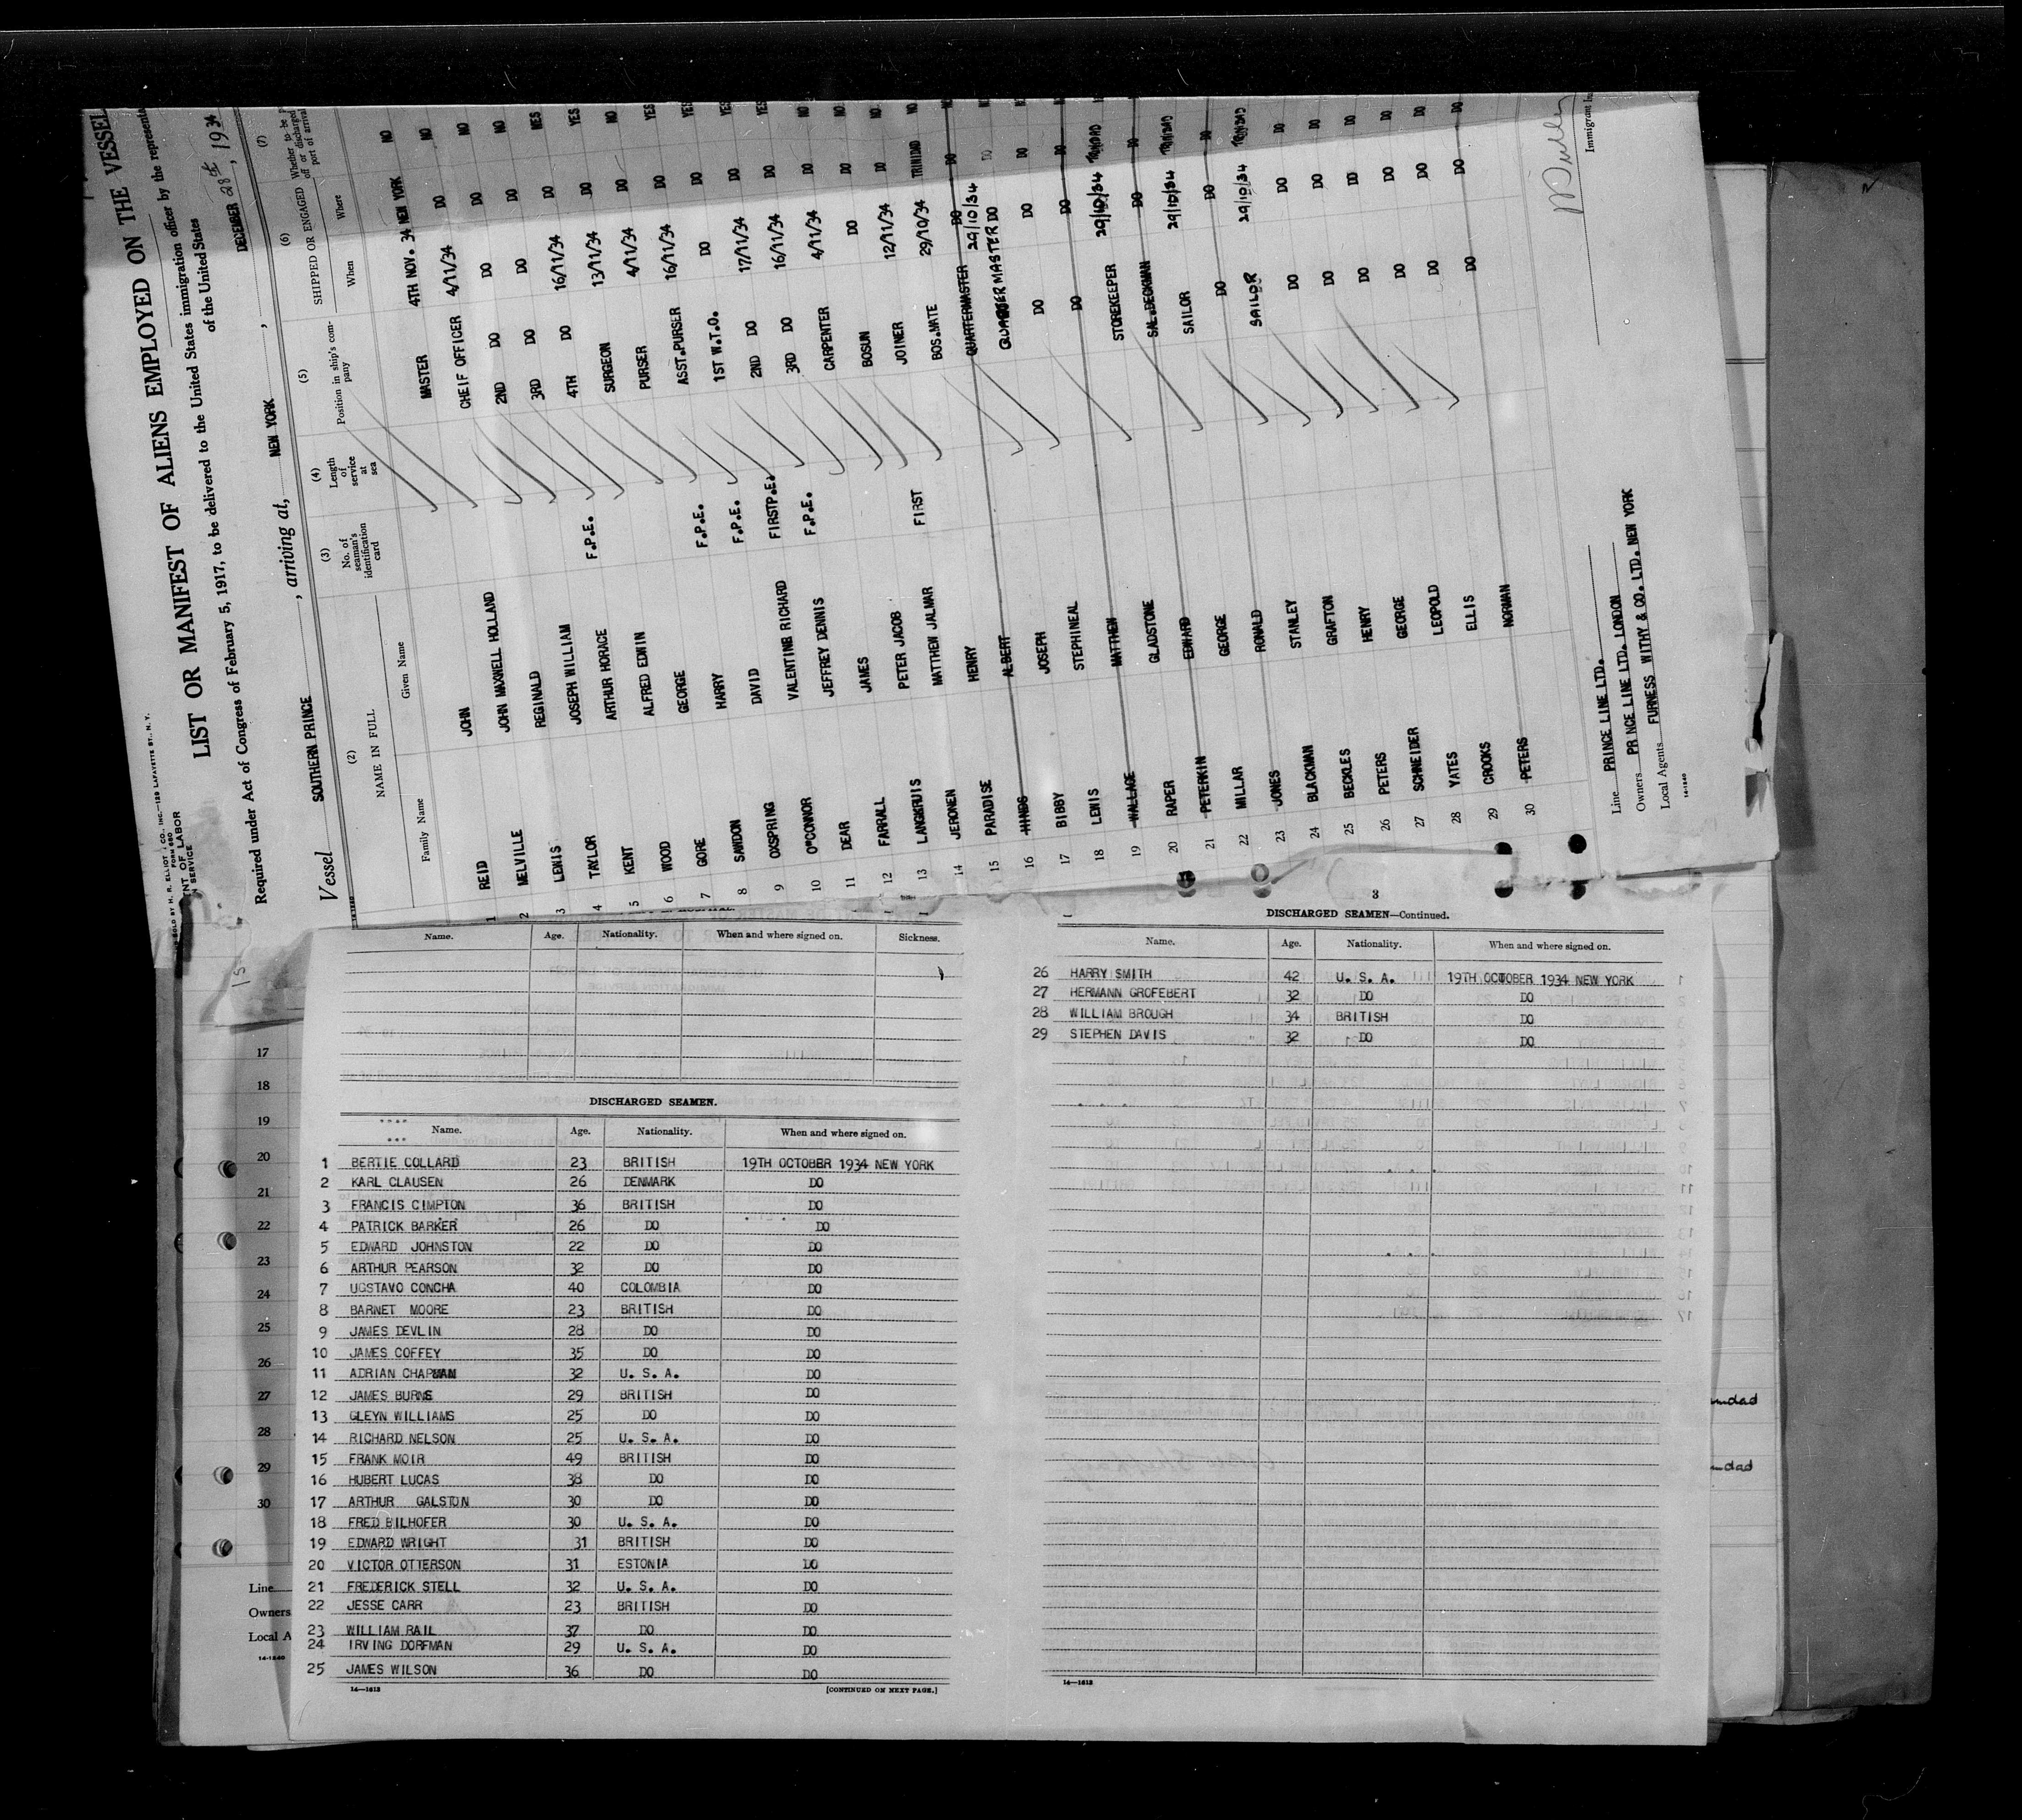 SOLD BY H. R. ELLIOT & CO., INC.—129 LAFAYETTE ST., N. Y.
FORM 680
LIST OR MANIFEST OF ALIENS EMPLOYED ON THE VESSEL
Required under Act of Congress of February 5, 1917, to be delivered to the United States immigration officer by the representa
of the United States
Vessel SOUTHERN PRINCE, arriving at, NEW YORK, DECEMBER 28th, 1934
(2) (3) (4) (5) (6) (7)
NAME IN FULL
Family Name Given Name
No. of seaman's identification card
Length of service at sea
Position in ship's company
SHIPPED OR ENGAGED
When Where
Whether to be p
off or discharged
port of arrival
1 REID JOHN MASTER 4TH NOV. 34 NEW YORK NO
2 MELVILLE JOHN MAXWELL HOLLAND CHEIF OFFICER 4/11/34 DO NO
3 LEWIS REGINALD 2ND DO DO DO NO
4 TAYLOR JOSEPH WILLIAM 3RD DO DO DO NO
5 KENT ARTHUR HORACE F.P.E. 4TH DO 16/11/34 DO YES
6 WOOD ALFRED EDWIN SURGEON 13/11/34 DO YES
7 GORE GEORGE PURSER 4/11/34 DO NO
8 SAWDON HARRY F.P.E. ASST.PURSER 16/11/34 DO YES
9 OXSPRING DAVID F.P.E. 1ST W.T.O. DO DO YES
10 O"CONNOR VALENTINE RICHARD FIRSTP.E. 2ND DO 17/11/34 DO YES
11 DEAR JEFFREY DENNIS F.P.E. 3RD DO 16/11/34 DO YES
12 FARRALL JAMES CARPENTER 4/11/34 DO NO
13 LANGKRUIS PETER JACOB BOSUN DO DO NO
14 JERONEN MATTHEW JALMAR FIRST JOINER 12/11/34 DO NO
15 PARADISE HENRY BOS.MATE 29/10/34 TRINIDAD NO
16 HINDS ALBERT QUARTERMASTER DO DO
17 BIBBY JOSEPH QUARTERMASTER 29/10/34 DO DO
18 LEWIS STEPHINEAL DO DO DO
19 WALLACE MATTHEW DO DO DO
20 RAPER GLADSTONE STOREKEEPER 29/10/34 TRINIDAD
21 PETERKIN EDWARD SAL.DECKMAN DO DO
22 MILLAR GEORGE SAILOR 29/10/34 TRINIDAD
23 JONES RONALD DO DO DO
24 BLACKMAN STANLEY SAILOR 29/10/34 TRINIDAD
25 BECKLES GRAFTON DO DO DO
26 PETERS HENRY DO DO DO
27 SCHNEIDER GEORGE DO DO DO
28 YATES LEOPOLD DO DO DO
29 CROOKS ELLIS DO DO DO
30 PETERS NORMAN DO DO DO
Line PRINCE LINE LTD.
Owners PRINCE LINE LTD. LONDON
Local Agents FURNESS WITHY & CO. LTD. NEW YORK
14-1240
Immigrant In
Name. Age. Nationality. When and where signed on. Sickness.
DISCHARGED SEAMEN.
Name. Age. Nationality. When and where signed on.
1 BERTIE COLLARD 23 BRITISH 19TH OCTOBER 1934 NEW YORK
2 KARL CLAUSEN 26 DENMARK DO
3 FRANCIS CIMPTON 36 BRITISH DO
4 PATRICK BARKER 26 DO DO
5 EDWARD JOHNSTON 22 DO DO
6 ARTHUR PEARSON 32 DO DO
7 UGSTAVO CONCHA 40 COLOMBIA DO
8 BARNET MOORE 23 BRITISH DO
9 JAMES DEVLIN 28 DO DO
10 JAMES COFFEY 35 DO DO
11 ADRIAN CHAPMAN 32 U. S. A. DO
12 JAMES BURNS 29 BRITISH DO
13 GLEYN WILLIAMS 25 DO DO
14 RICHARD NELSON 25 U. S. A. DO
15 FRANK MOIR 49 BRITISH DO
16 HUBERT LUCAS 38 DO DO
17 ARTHUR GALSTON 30 DO DO
18 FRED BILHOFER 30 U. S. A. DO
19 EDWARD WRIGHT 31 BRITISH DO
20 VICTOR OTTERSON 31 ESTONIA DO
21 FREDERICK STELL 32 U. S. A. DO
22 JESSE CARR 23 BRITISH DO
23 WILLIAM RAIL 37 DO DO
24 IRVING DORFMAN 29 U. S. A. DO
25 JAMES WILSON 36 DO DO
14—1613 [CONTINUED ON NEXT PAGE.]
3
DISCHARGED SEAMEN—Continued.
Name. Age. Nationality. When and where signed on.
26 HARRY SMITH 42 U. S. A. 19TH OCTOBER 1934 NEW YORK
27 HERMANN GROFEBERT 32 DO DO
28 WILLIAM BROUGH 34 BRITISH DO
29 STEPHEN DAVIS 32 DO DO
14—1613
17
18
19
20
21
22
23
24
25
26
27
28
29
30
Line
Owners
Local A
14-1240